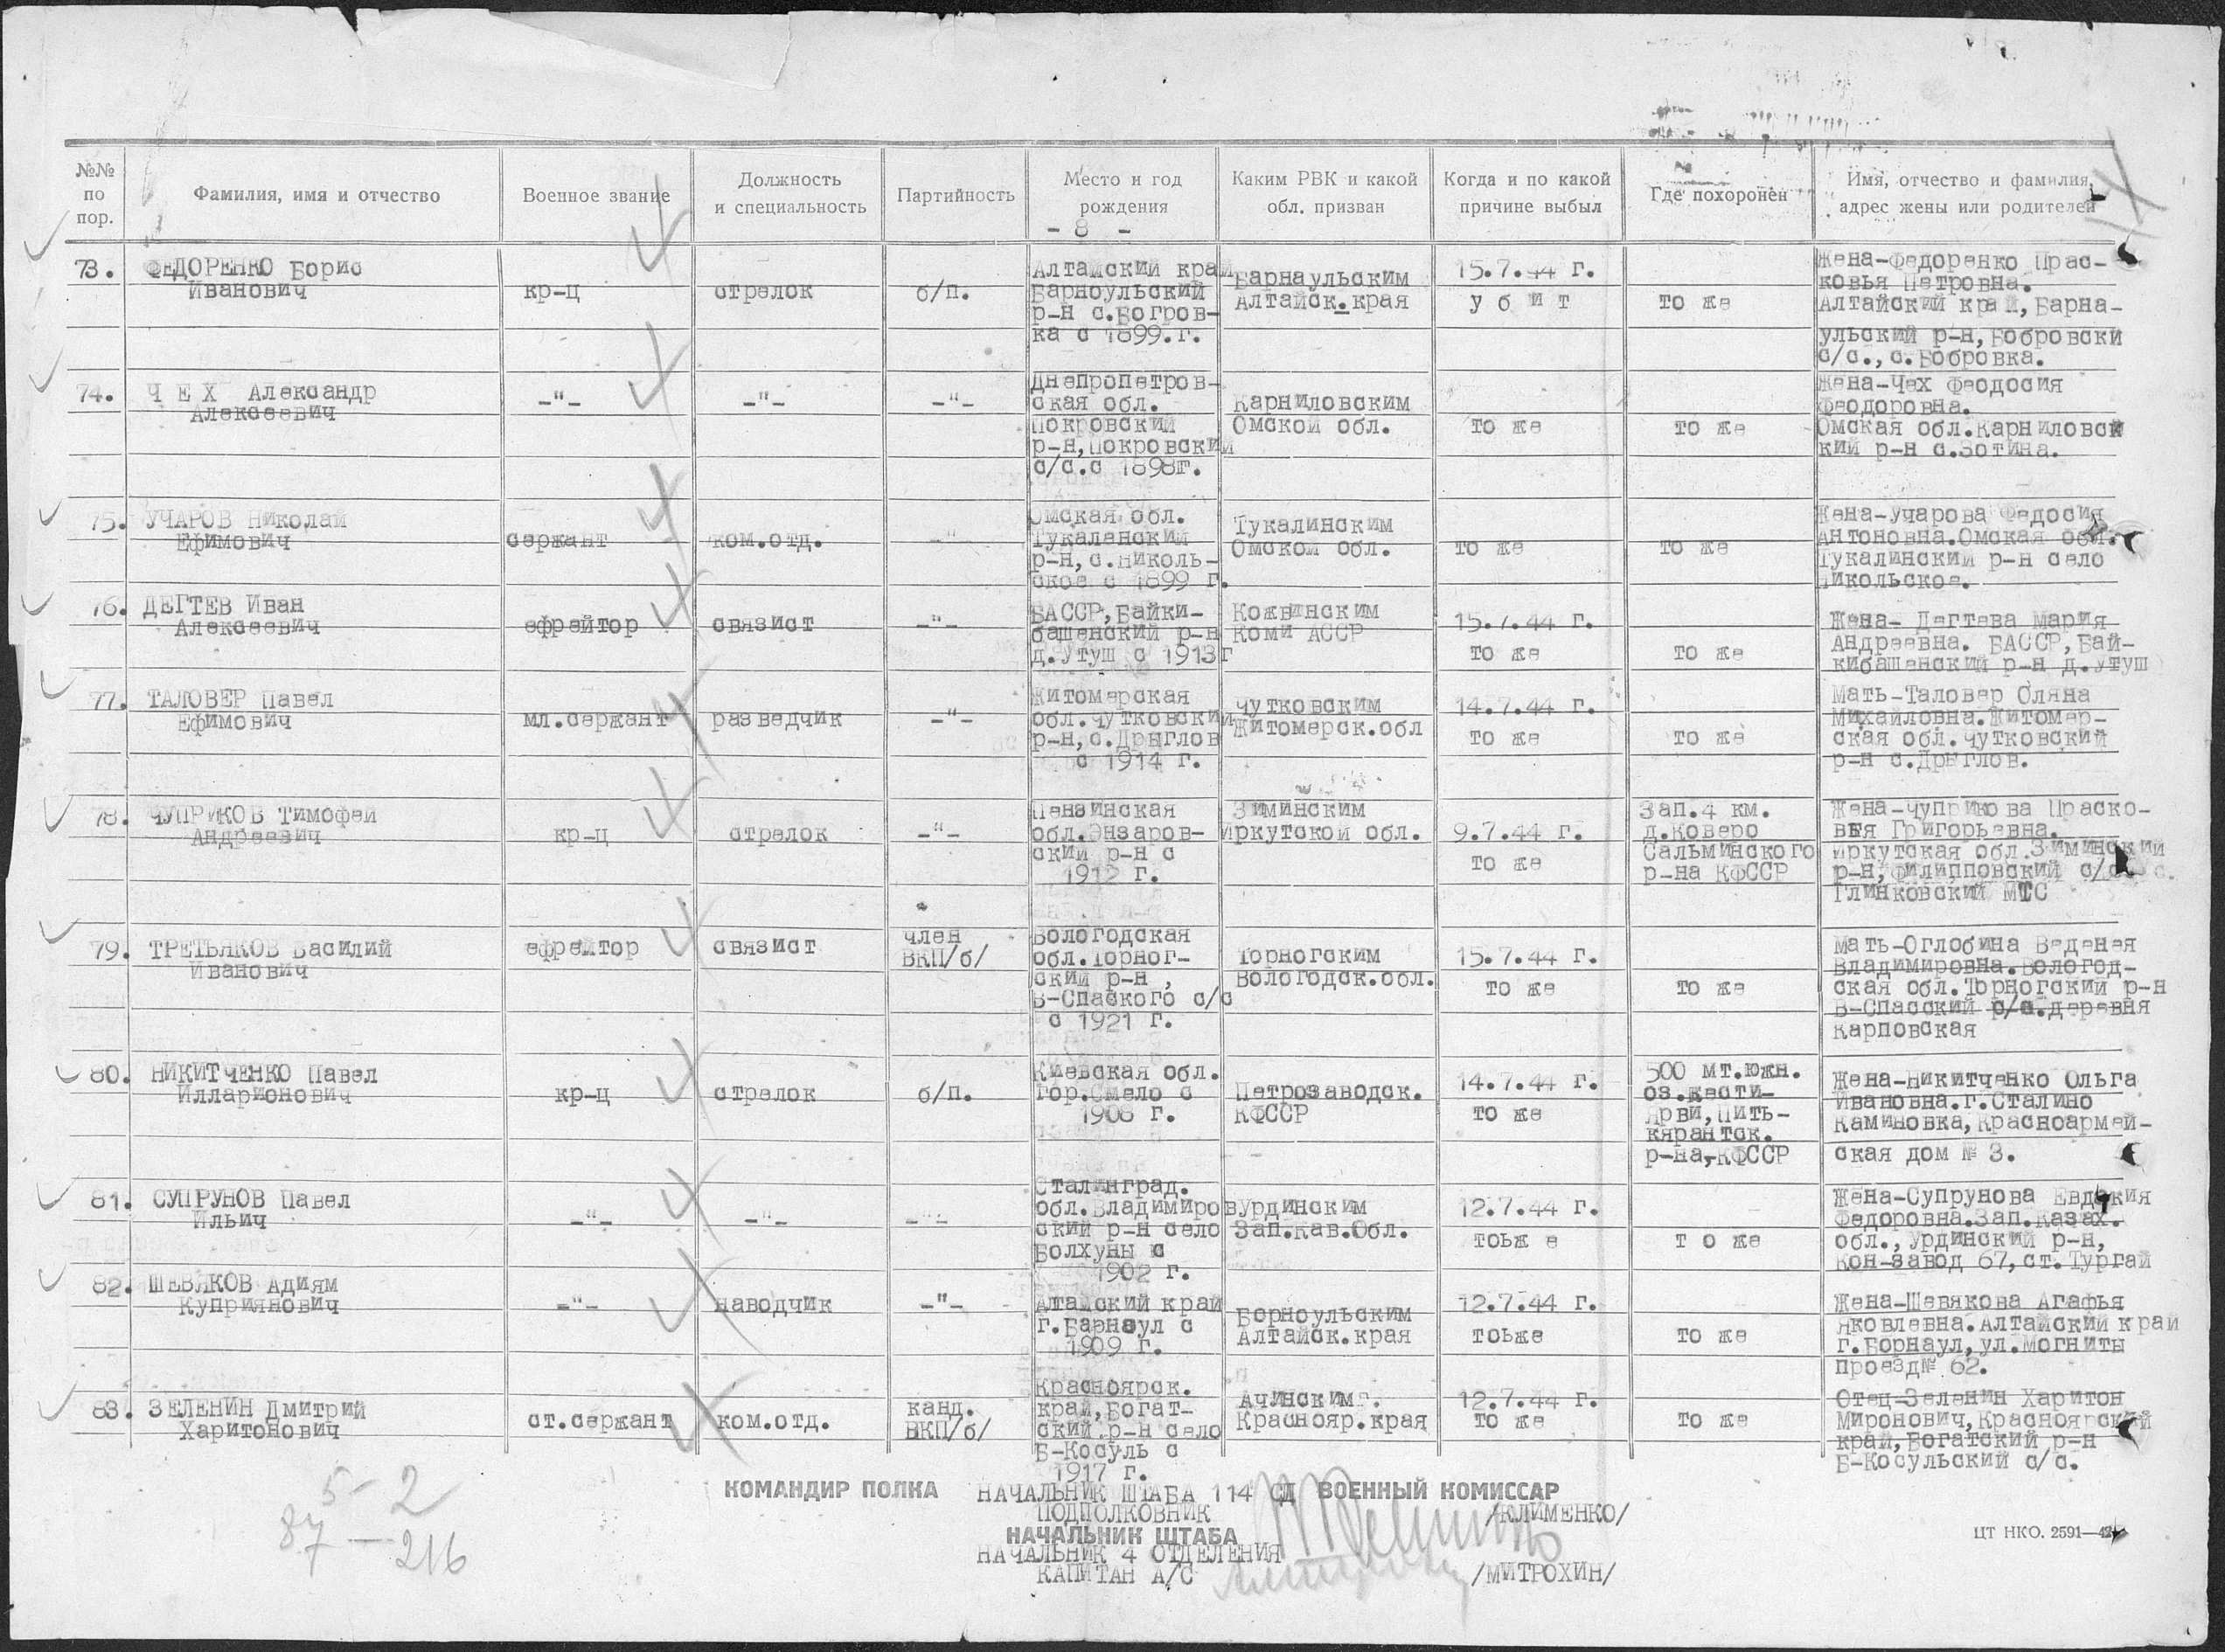 №№ по пор.
Фамилия, имя и отчество
Военное звание
Должность и специальность
Партийность
Место и год рождения
Каким РВК и какой обл. призван
Когда и по какой причине выбыл
Где похоронен
Имя, отчество и фамилия, адрес жены или родителей
- 8 -
73. ФЕДОРЕНКО Борис
Иванович
кр-ц
стрелок
б/п.
Алтайский край
Барноульский
р-н с.Богров-
ка с 1899.г.
Барнаульским
Алтайск.края
15.7.44 г.
у б и т
то же
Жена-Федоренко Прас-
ковья Петровна.
Алтайский край, Барна-
ульский р-н, Бобровски
с/с., с.Бобровка.
74. Ч Е Х Александр
Алексеевич
-"-
-"-
-"-
Днепропетров-
ская обл.
Покровский
р-н, Покровский
с/с.с 1898г.
Карниловским
Омской обл.
то же
то же
Жена-Чех Феодосия
Феодоровна.
Омская обл.Карниловск
кий р-н с.Зотина.
75. УЧАРОВ Николай
Ефимович
сержант
ком.отд.
-"
Омская обл.
Тукаленский
р-н, с.Николь-
ское с 1899 г.
Тукалинским
Омской обл.
то же
то же
Жена-Учарова Федосия
Антоновна.Омская обл.
Тукалинский р-н село
Никольское.
76. ДЕГТЕВ Иван
Алексеевич
ефрейтор
связист
-"-
БАССР, Байки-
башенский р-н
д.Утуш с 1913г
Кожвинским
Коми АССР
15.7.44 г.
то же
то же
Жена- Дегтева Мария
Андреевна. БАССР, Бай-
кибашенский р-н д.Утуш
77. ТАЛОВЕР Павел
Ефимович
мл.сержант
разведчик
-"-
Житомерская
обл.Чутковский
р-н, с.Дрыглов
с 1914 г.
Чутковским
Житомерск.обл
14.7.44 г.
то же
то же
Мать-Таловер Оляна
Михайловна.Житомер-
ская обл.Чутковский
р-н с.Дрыглов.
78. ЧУПРИКОВ Тимофей
Андреевич
кр-ц
стрелок
-"-
Пензинская
обл.Энзаров-
ский р-н с
1912 г.
Зиминским
Иркутской обл.
9.7.44 г.
то же
Зап.4 км.
д.Коверо
Сальминского
р-на КФССР
Жена-Чуприкова Праско-
вья Григорьевна.
Иркутская обл.Зиминский
р-н, Филипповский с/с с.
Глинковский МТС
79. ТРЕТЬЯКОВ Василий
Иванович
ефрейтор
связист
член
ВКП/б/
Вологодская
обл.Торног-
ский р-н ,
В-Спаского с/с
с 1921 г.
Торногским
Вологодск.обл.
15.7.44 г.
то же
то же
Мать-Оглобина Веденея
Владимировна.Вологод-
ская обл.Торногский р-н
В-Спасский с/с.деревня
Карповская
80. НИКИТЧЕНКО Павел
Илларионович
кр-ц
стрелок
б/п.
Киевская обл.
гор.Смело с
1908 г.
Петрозаводск.
КФССР
14.7.44 г.
то же
500 мт.южн.
оз.Жести-
ярви, Пить-
кярантск.
р-на, КФССР
Жена-Никитченко Ольга
Ивановна.г.Сталино
Каминовка, Красноармей-
ская дом № 3.
81. СУПРУНОВ Павел
Ильич
-"-
-"-
-"-
Сталинград.
обл.Владимиров
ский р-н село
Болхуны с
1902 г.
Урдинским
Зап.Кав.Обл.
12.7.44 г.
тоьж е
т о же
Жена-Супрунова Евдокия
Федоровна.Зап.Казах.
обл., Урдинский р-н,
Кон-завод 67, ст.Тургай
82. ШЕВЯКОВ Адиям
Куприянович
-"-
наводчик
-"-
Алтайский край
г.Барнаул с
1909 г.
Борноульским
Алтайск.края
12.7.44 г.
тоьже
то же
Жена-Шевякова Агафья
Яковлевна.Алтайский край
г.Борнаул, ул.Могниты
проезд№ 62.
83. ЗЕЛЕНИН Дмитрий
Харитонович
ст.сержант
ком.отд.
канд.
ВКП/б/
Красноярск.
край, Богат-
ский.р-н село
Б-Косуль с
1917 г.
Ачинским г.
Краснояр.края
12.7.44 г.
то же
то же
Отец-Зеленин Харитон
Миронович, Красноярский
край, Богатский р-н
Б-Косульский с/с.
5-2
87-216
КОМАНДИР ПОЛКА НАЧАЛЬНИК ШТАБА 114 СД ВОЕННЫЙ КОМИССАР
ПОДПОЛКОВНИК /КЛИМЕНКО/
НАЧАЛЬНИК ШТАБА
НАЧАЛЬНИК 4 ОТДЕЛЕНИЯ
КАПИТАН А/С /МИТРОХИН/
ЦТ НКО. 2591—42